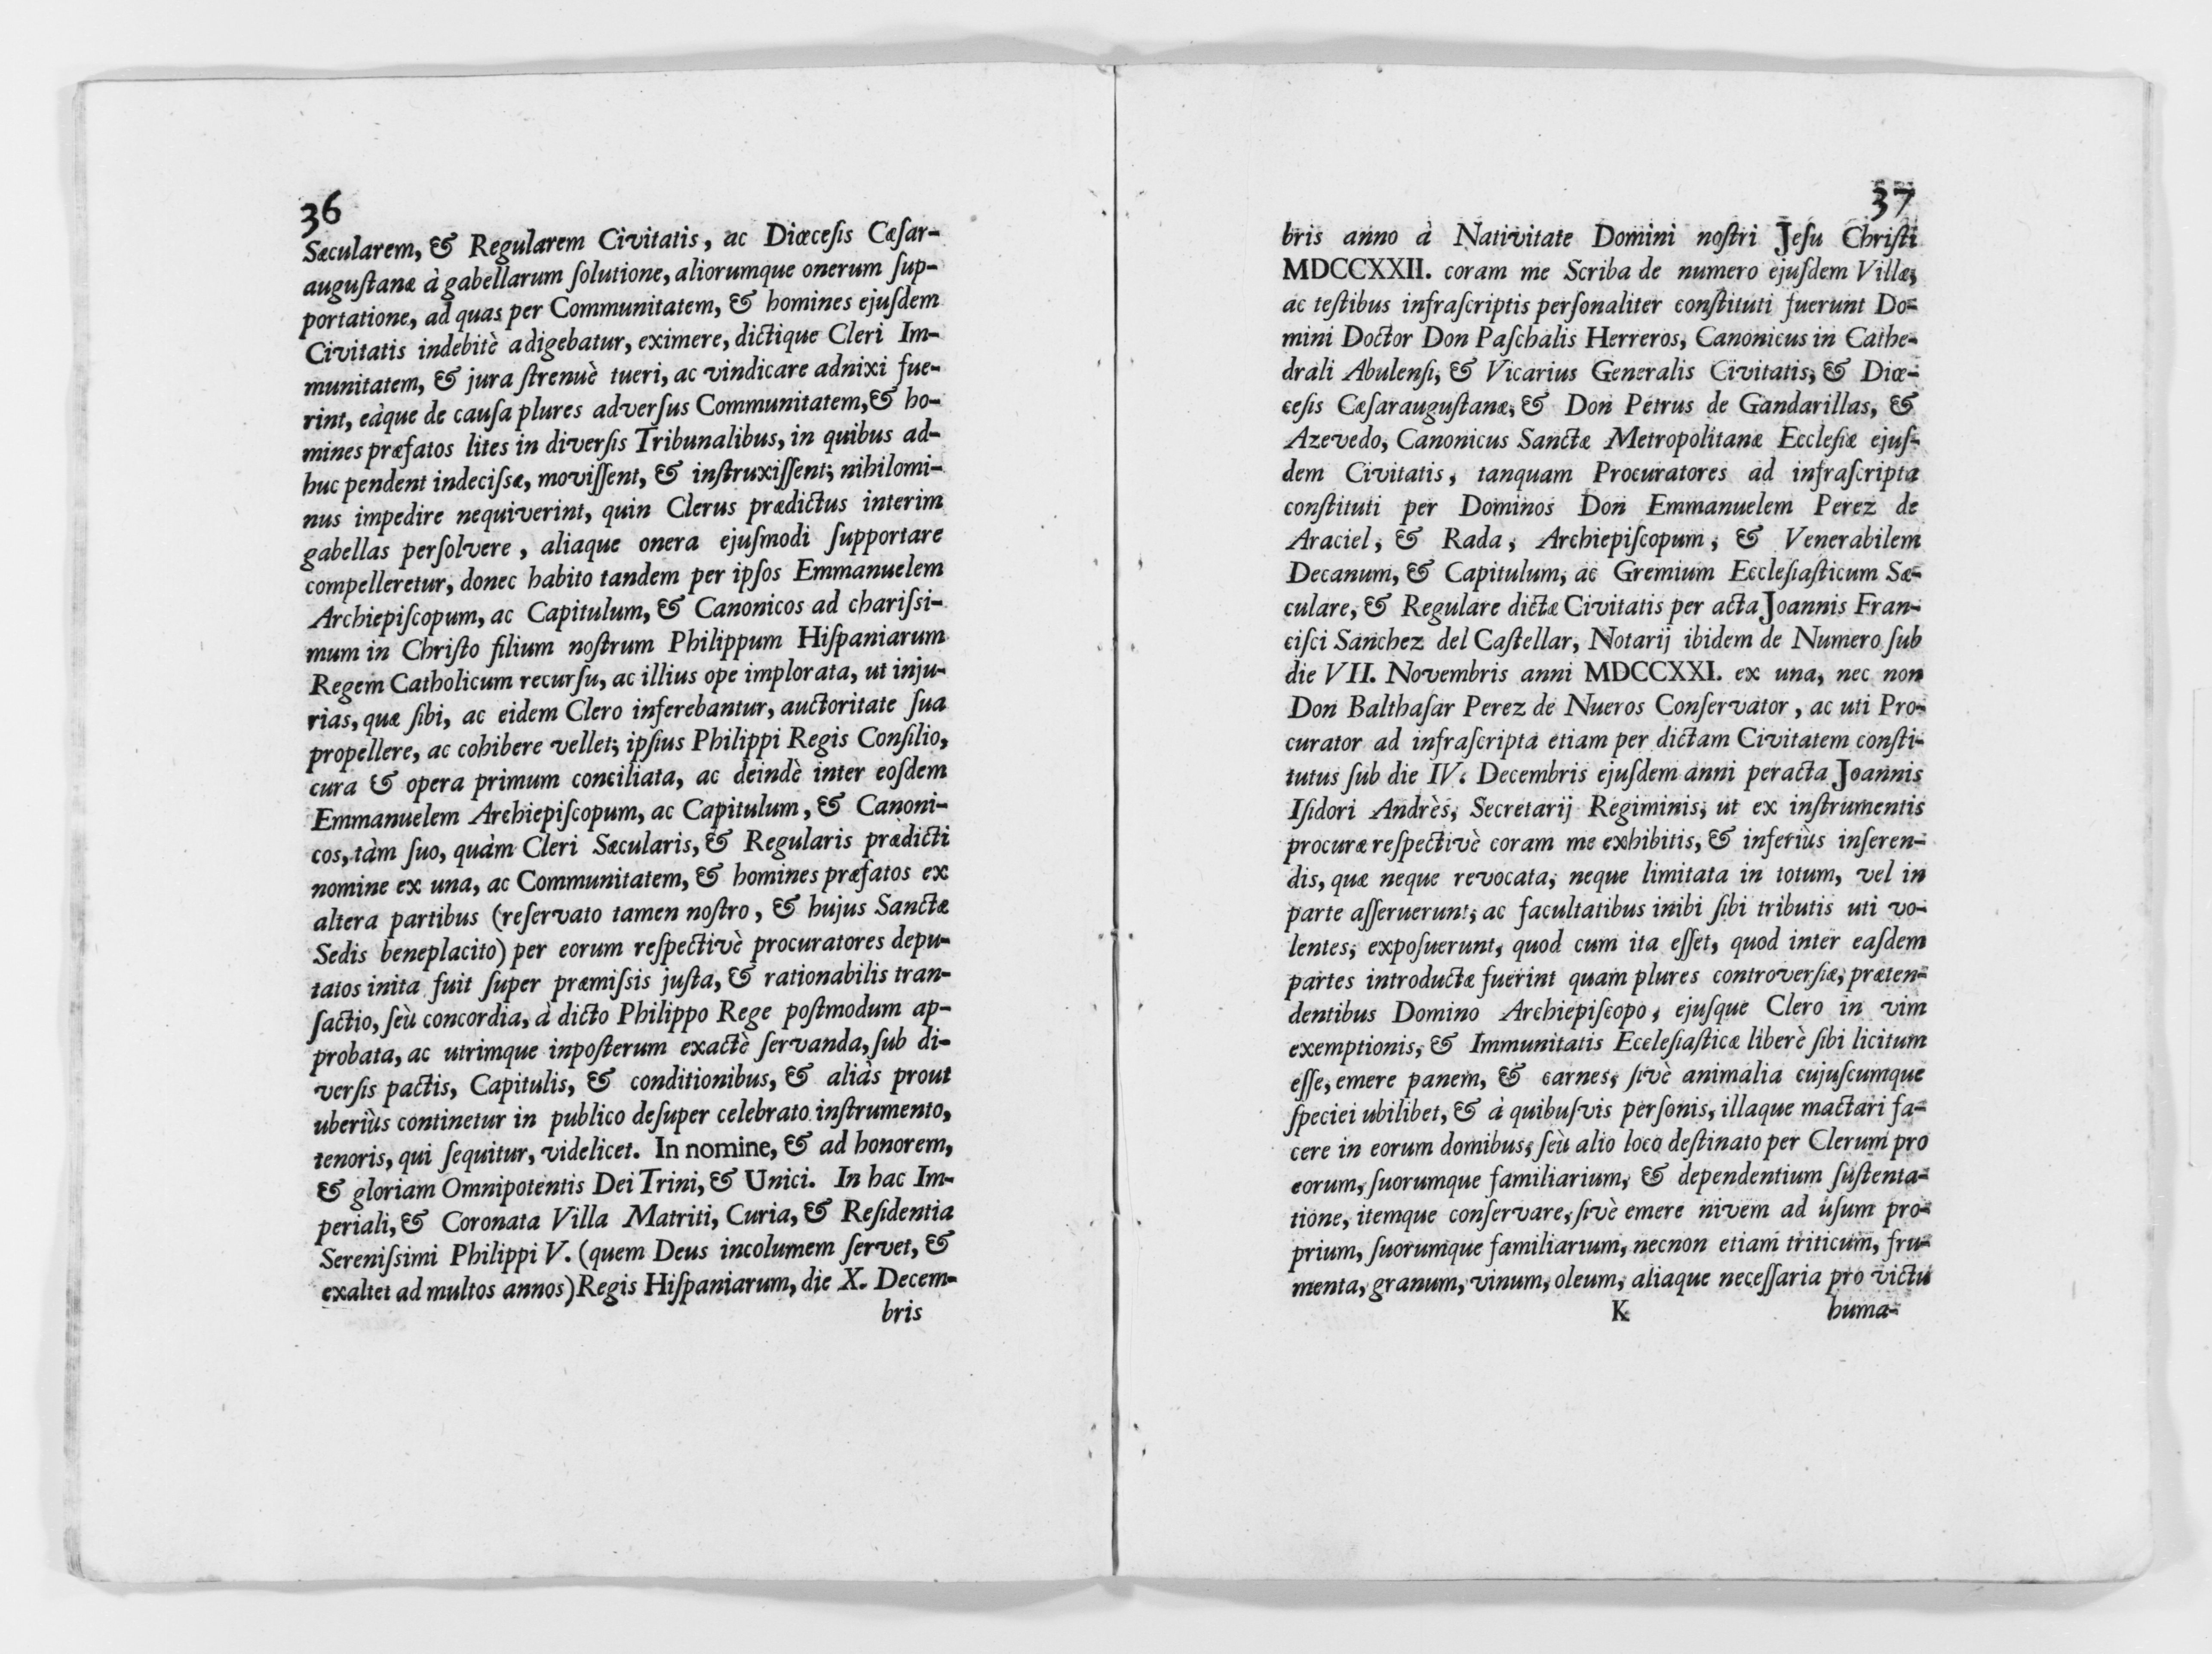 36
Sæcularem, & Regularem Civitatis, ac Diœceſis Cæſar-
auguſtanæ à gabellarum ſolutione, aliorumque onerum ſup-
portatione, ad quas per Communitatem, & homines ejuſdem
Civitatis indebitè adigebatur, eximere, dictique Cleri Im-
munitatem, & jura ſtrenuè tueri, ac vindicare adnixi fue-
rint, eàque de cauſa plures adverſus Communitatem, & ho-
mines præfatos lites in diverſis Tribunalibus, in quibus ad-
huc pendent indeciſsæ, moviſſent, & inſtruxiſſent; nihilomi-
nus impedire nequiverint, quin Clerus prædictus interim
gabellas perſolvere, aliaque onera ejuſmodi ſupportare
compelleretur, donec habito tandem per ipſos Emmanuelem
Archiepiſcopum, ac Capitulum, & Canonicos ad chariſsi-
mum in Chriſto filium noſtrum Philippum Hiſpaniarum
Regem Catholicum recurſu, ac illius ope implorata, ut inju-
rias, quæ ſibi, ac eidem Clero inferebantur, auctoritate ſua
propellere, ac cohibere vellet; ipſius Philippi Regis Conſilio,
cura & opera primum conciliata, ac deindè inter eoſdem
Emmanuelem Archiepiſcopum, ac Capitulum, & Canoni-
cos, tàm ſuo, quàm Cleri Sæcularis, & Regularis prædicti
nomine ex una, ac Communitatem, & homines præfatos ex
altera partibus (reſervato tamen noſtro, & hujus Sanctæ
Sedis beneplacito) per eorum reſpectivè procuratores depu-
tatos inita fuit ſuper præmiſsis juſta, & rationabilis tran-
ſactio, ſeù concordia, à dicto Philippo Rege poſtmodum ap-
probata, ac utrimque inpoſterum exactè ſervanda, ſub di-
verſis pactis, Capitulis, & conditionibus, & aliàs prout
uberiùs continetur in publico deſuper celebrato inſtrumento,
tenoris, qui ſequitur, videlicet. In nomine, & ad honorem,
& gloriam Omnipotentis Dei Trini, & Unici. In hac Im-
periali, & Coronata Villa Matriti, Curia, & Reſidentia
Sereniſsimi Philippi V. (quem Deus incolumem ſervet, &
exaltet ad multos annos) Regis Hiſpaniarum, die X. Decem-
bris
37
bris anno à Nativitate Domini noſtri Jeſu Chriſti
MDCCXXII. coram me Scriba de numero ejuſdem Villæ,
ac teſtibus infraſcriptis perſonaliter conſtituti fuerunt Do-
mini Doctor Don Paſchalis Herreros, Canonicus in Cathe-
drali Abulenſi, & Vicarius Generalis Civitatis, & Diœ-
ceſis Cæſarauguſtanæ, & Don Petrus de Gandarillas, &
Azevedo, Canonicus Sanctæ Metropolitanæ Eccleſiæ ejuſ-
dem Civitatis, tanquam Procuratores ad infraſcripta
conſtituti per Dominos Don Emmanuelem Perez de
Araciel, & Rada, Archiepiſcopum, & Venerabilem
Decanum, & Capitulum, ac Gremium Eccleſiaſticum Sæ-
culare, & Regulare dictæ Civitatis per acta Joannis Fran-
ciſci Sanchez del Caſtellar, Notarij ibidem de Numero ſub
die VII. Novembris anni MDCCXXI. ex una, nec non
Don Balthaſar Perez de Nueros Conſervator, ac uti Pro-
curator ad infraſcripta etiam per dictam Civitatem conſti-
tutus ſub die IV. Decembris ejuſdem anni peracta Joannis
Iſidori Andrès, Secretarij Regiminis, ut ex inſtrumentis
procuræ reſpectivè coram me exhibitis, & inferiùs inſeren-
dis, quæ neque revocata, neque limitata in totum, vel in
parte aſſeruerunt, ac facultatibus inibi ſibi tributis uti vo-
lentes, expoſuerunt, quod cum ita eſſet, quod inter eaſdem
partes introductæ fuerint quam plures controverſiæ, præten-
dentibus Domino Archiepiſcopo, ejuſque Clero in vim
exemptionis, & Immunitatis Eccleſiaſticæ liberè ſibi licitum
eſſe, emere panem, & carnes, ſivè animalia cujuſcumque
ſpeciei ubilibet, & à quibuſvis perſonis, illaque mactari fa-
cere in eorum domibus, ſeù alio loco deſtinato per Clerum pro
eorum, ſuorumque familiarium, & dependentium ſuſtenta-
tione, itemque conſervare, ſivè emere nivem ad uſum pro-
prium, ſuorumque familiarium, necnon etiam triticum, fru-
menta, granum, vinum, oleum, aliaque neceſſaria pro victu
K huma-